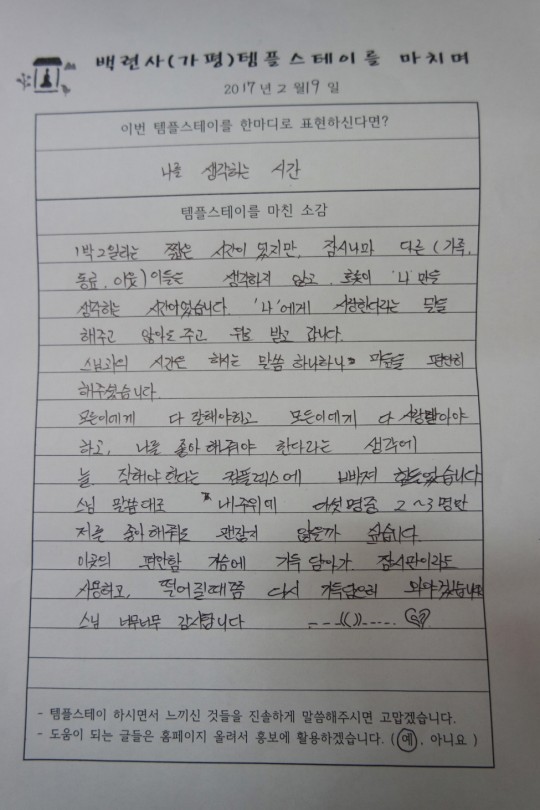 백련사(가평)템플스테이를 마치며
2017년 2월19일
이번 템플스테이를 한마디로 표현하신다면?
나를 생각하는 시간
템플스테이를 마친 소감
1박2일라는 짧은 시간이 였지만, 잠시나마 다른(가족,
동료, 이웃)이들은 생각하지 않고, 오롯이 '나'만을
생각하는 시간이었습니다. '나'에게 사랑한다라는 말을
해주고 안아도 주고 위로 받고 갑니다.
스님과의 시간은 하시는 말씀 하나하나가 마음을 편안히
해주셨습니다.
모든이에게 다 잘해야하고 모든이에게 다 사랑받아야
하고, 나를 좋아해줘야 한다라는 생각에
늘 착해야한다는 컴플렉스에 빠져 힘들었습니다
스님 말씀대로 내 주위에 여섯명중 2~3명만
저를 좋아해줘도 괜찮지 않을까 싶습니다.
이곳의 편안함 가슴에 가득 담아가 잠시만이라도
사용하고, 떨어질때쯤 다시 가득담으러 와야겠습니다
스님 너무너무 감사합니다
- 템플스테이 하시면서 느끼신 것들을 진솔하게 말씀해주시면 고맙겠습니다.
- 도움이 되는 글들은 홈페이지 올려서 홍보에 활용하겠습니다. ( 예, 아니요 )